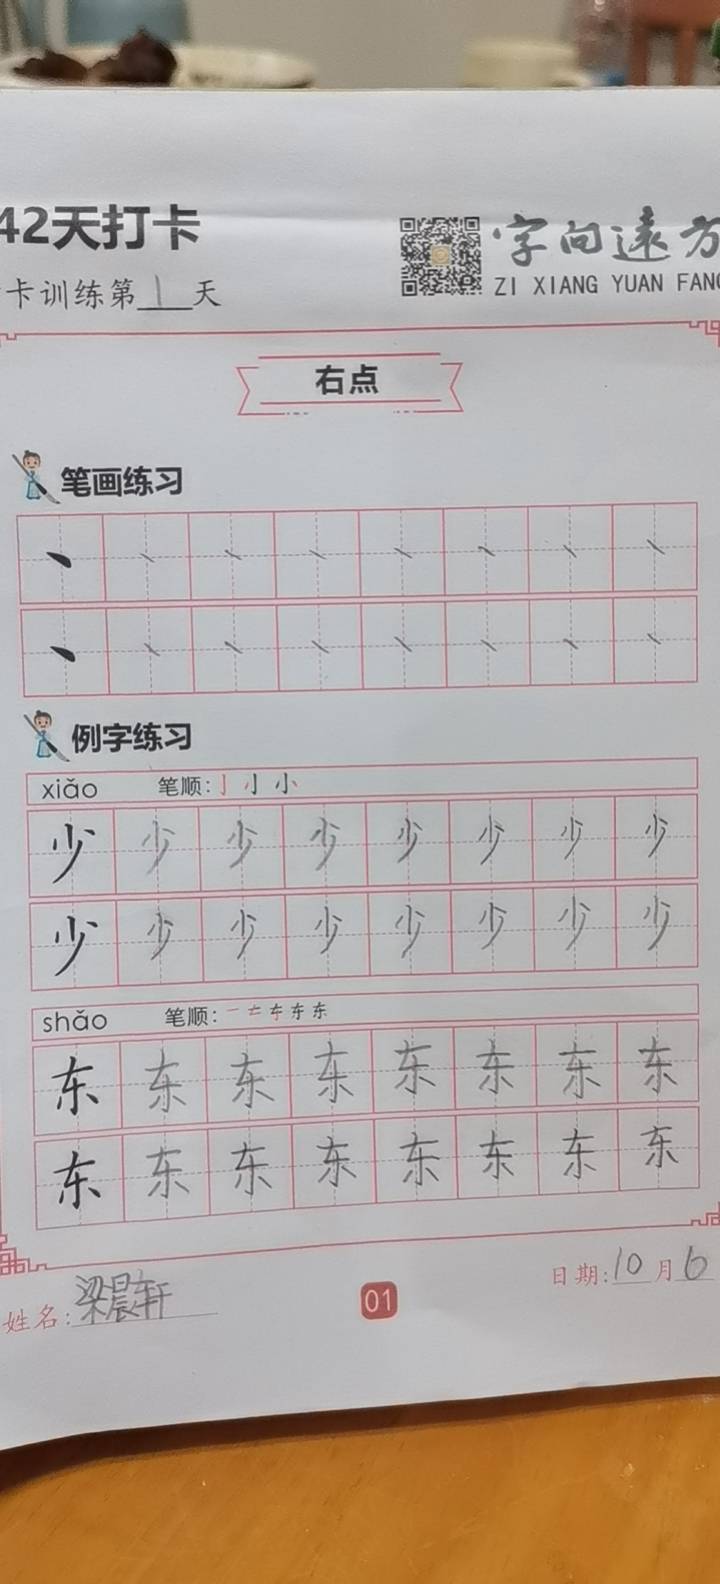 42天打卡
卡训练第1天
字向远方
ZI XIANG YUAN FANG
右点
笔画练习
丶 丶 丶 丶 丶 丶 丶 丶
丶 丶 丶 丶 丶 丶 丶 丶
例字练习
xiǎo 笔顺: 亅 小 小
少 少 少 少 少 少 少 少
少 少 少 少 少 少 少 少
shǎo 笔顺: 一 𠂇 东 东 东
东 东 东 东 东 东 东 东
东 东 东 东 东 东 东 东
姓名: 梁晨轩
01
日期: 10月6